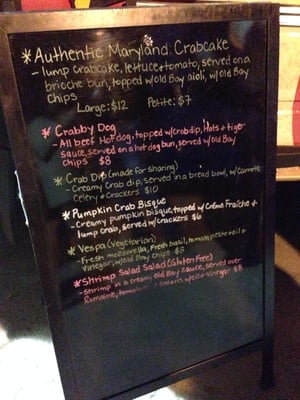 *Authentic Maryland Crabcake
- lump crabcake, lettuce + tomato, served on a
brioche bun, topped w/ old Bay aioli, w/ old Bay
chips
Large: $12 Petite: $7
*Crabby Dog
- All beef Hot dog, topped w/ crab dip, Hots + tiger
sauce, served on a hot dog bun, served w/ old Bay
chips $8
*Crab Dip (made for sharing)
- Creamy Crab dip, served in a bread bowl, w/ carrots
Celery + Crackers $10
*Pumpkin Crab Bisque
- Creamy pumpkin bisque, topped w/ Crème Fraîche +
lump crab, served w/ crackers $6
*Vespa (vegetarian)
- Fresh mozzarella, fresh basil, tomato, pesto + oil +
vinegar, w/ old Bay chips
*Shrimp Salad Salad (Gluten Free)
- Shrimp in a creamy old Bay sauce, served over
Romaine, tomato + onions w/ oil + vinegar $8